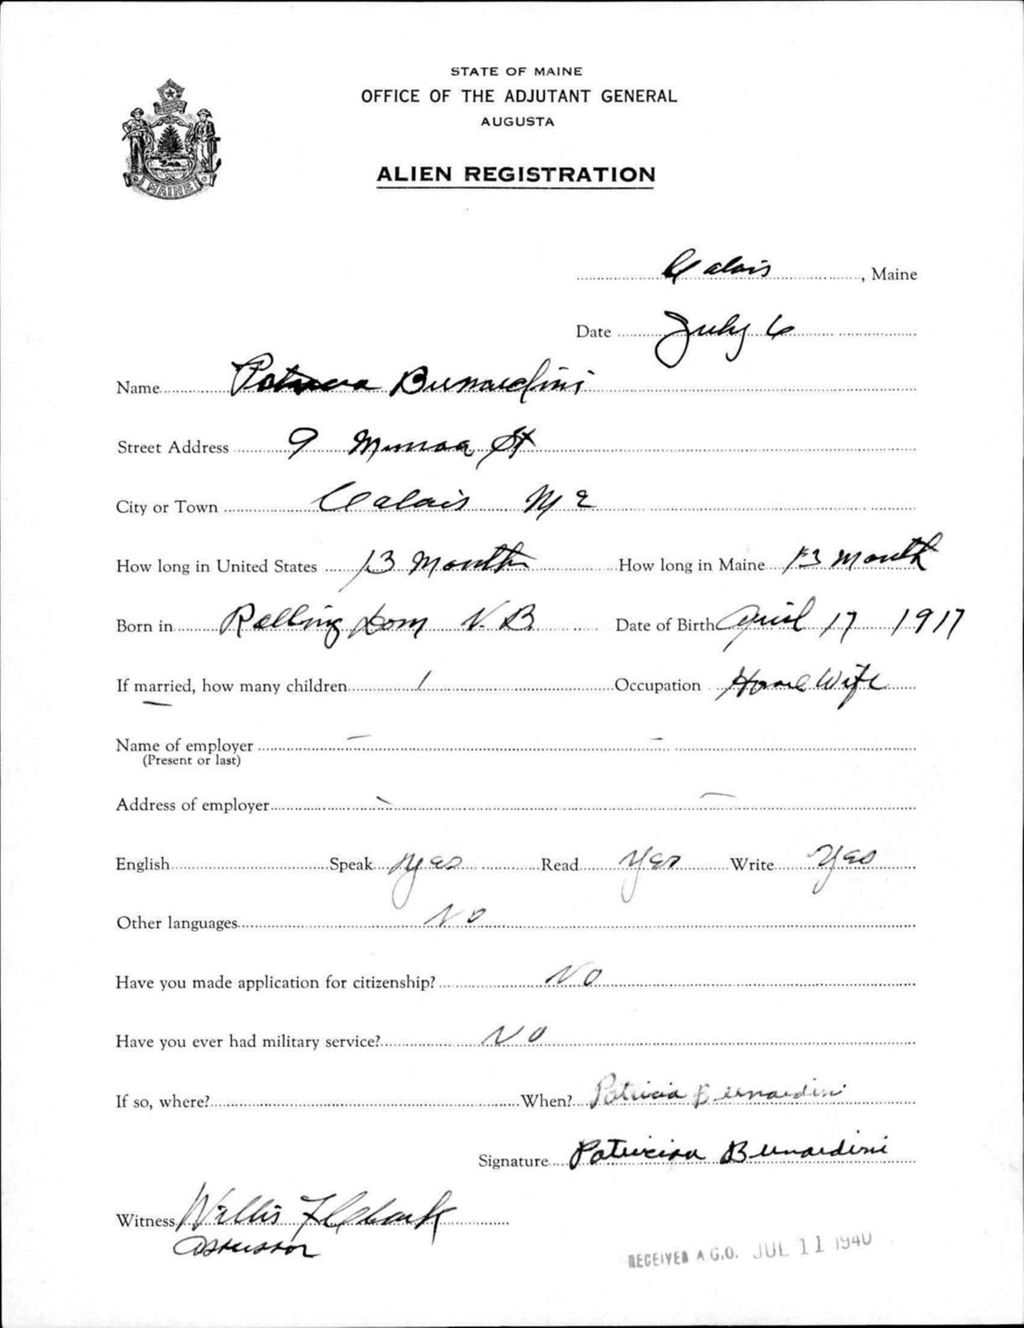 STATE OF MAINE
OFFICE OF THE ADJUTANT GENERAL
AUGUSTA
ALIEN REGISTRATION
MAINE
Calais, Maine
Date July 6
Name Patricia Bernardini
Street Address 9 St
City or Town Calais Me
How long in United States 13 Months How long in Maine 13 Month
Born in Rolling Dam N.B. Date of Birth April 17 1917
If married, how many children 1 Occupation House Wife
Name of employer - -
(Present or last)
Address of employer - -
English Speak Yes Read Yes Write Yes
Other languages No
Have you made application for citizenship? No
Have you ever had military service? No
If so, where? When? Patricia Bernardini
Signature Patricia Bernardini
Witness Willis F Clark
assessor
RECEIVED A.G.O. JUL 11 1940